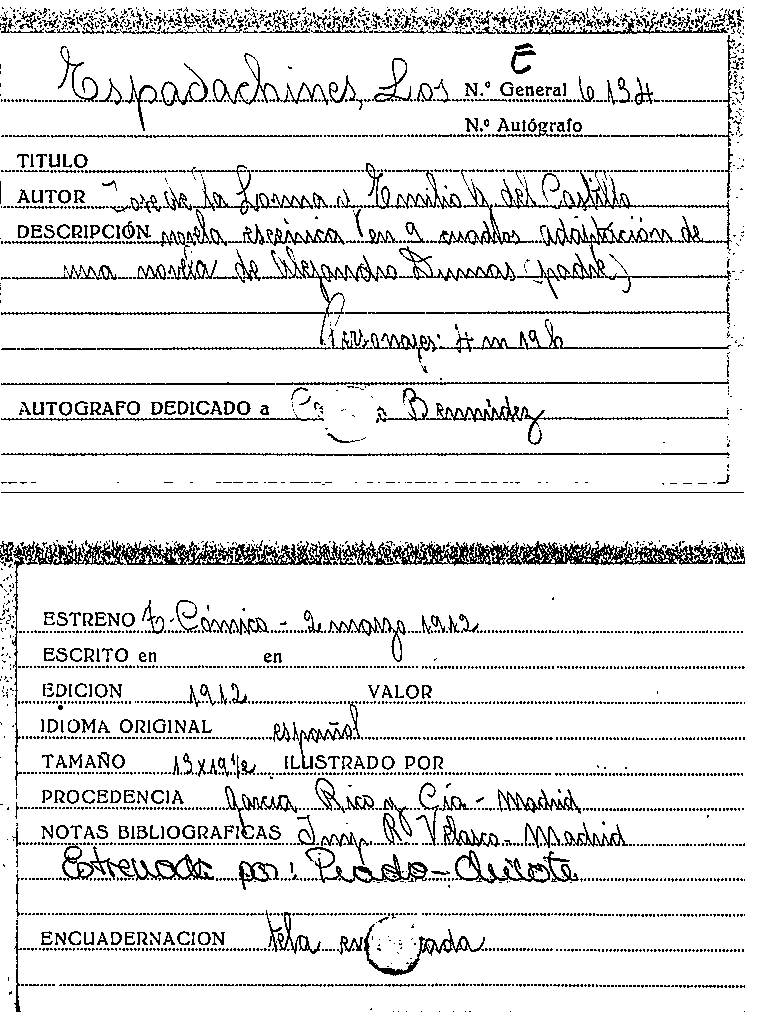 E
Espadachines, Los N.º General 6134
N.º Autógrafo
TITULO
AUTOR José de la Loma y Emilio G. del Castillo
DESCRIPCIÓN novela escénica en 9 cuadros adaptación de
una novela de Alejandro Dumas (padre)
Personajes: 4 m 19 h
AUTOGRAFO DEDICADO a Bermúdez
ESTRENO T. Cómico - 2 marzo 1912
ESCRITO en en
EDICION 1912 VALOR
IDIOMA ORIGINAL español
TAMAÑO 13x19½ ILUSTRADO POR
PROCEDENCIA García Rico y Cía - Madrid
NOTAS BIBLIOGRAFICAS Imp. R. Velasco - Madrid
Estrenada por: Prado-Chicote
ENCUADERNACION tela